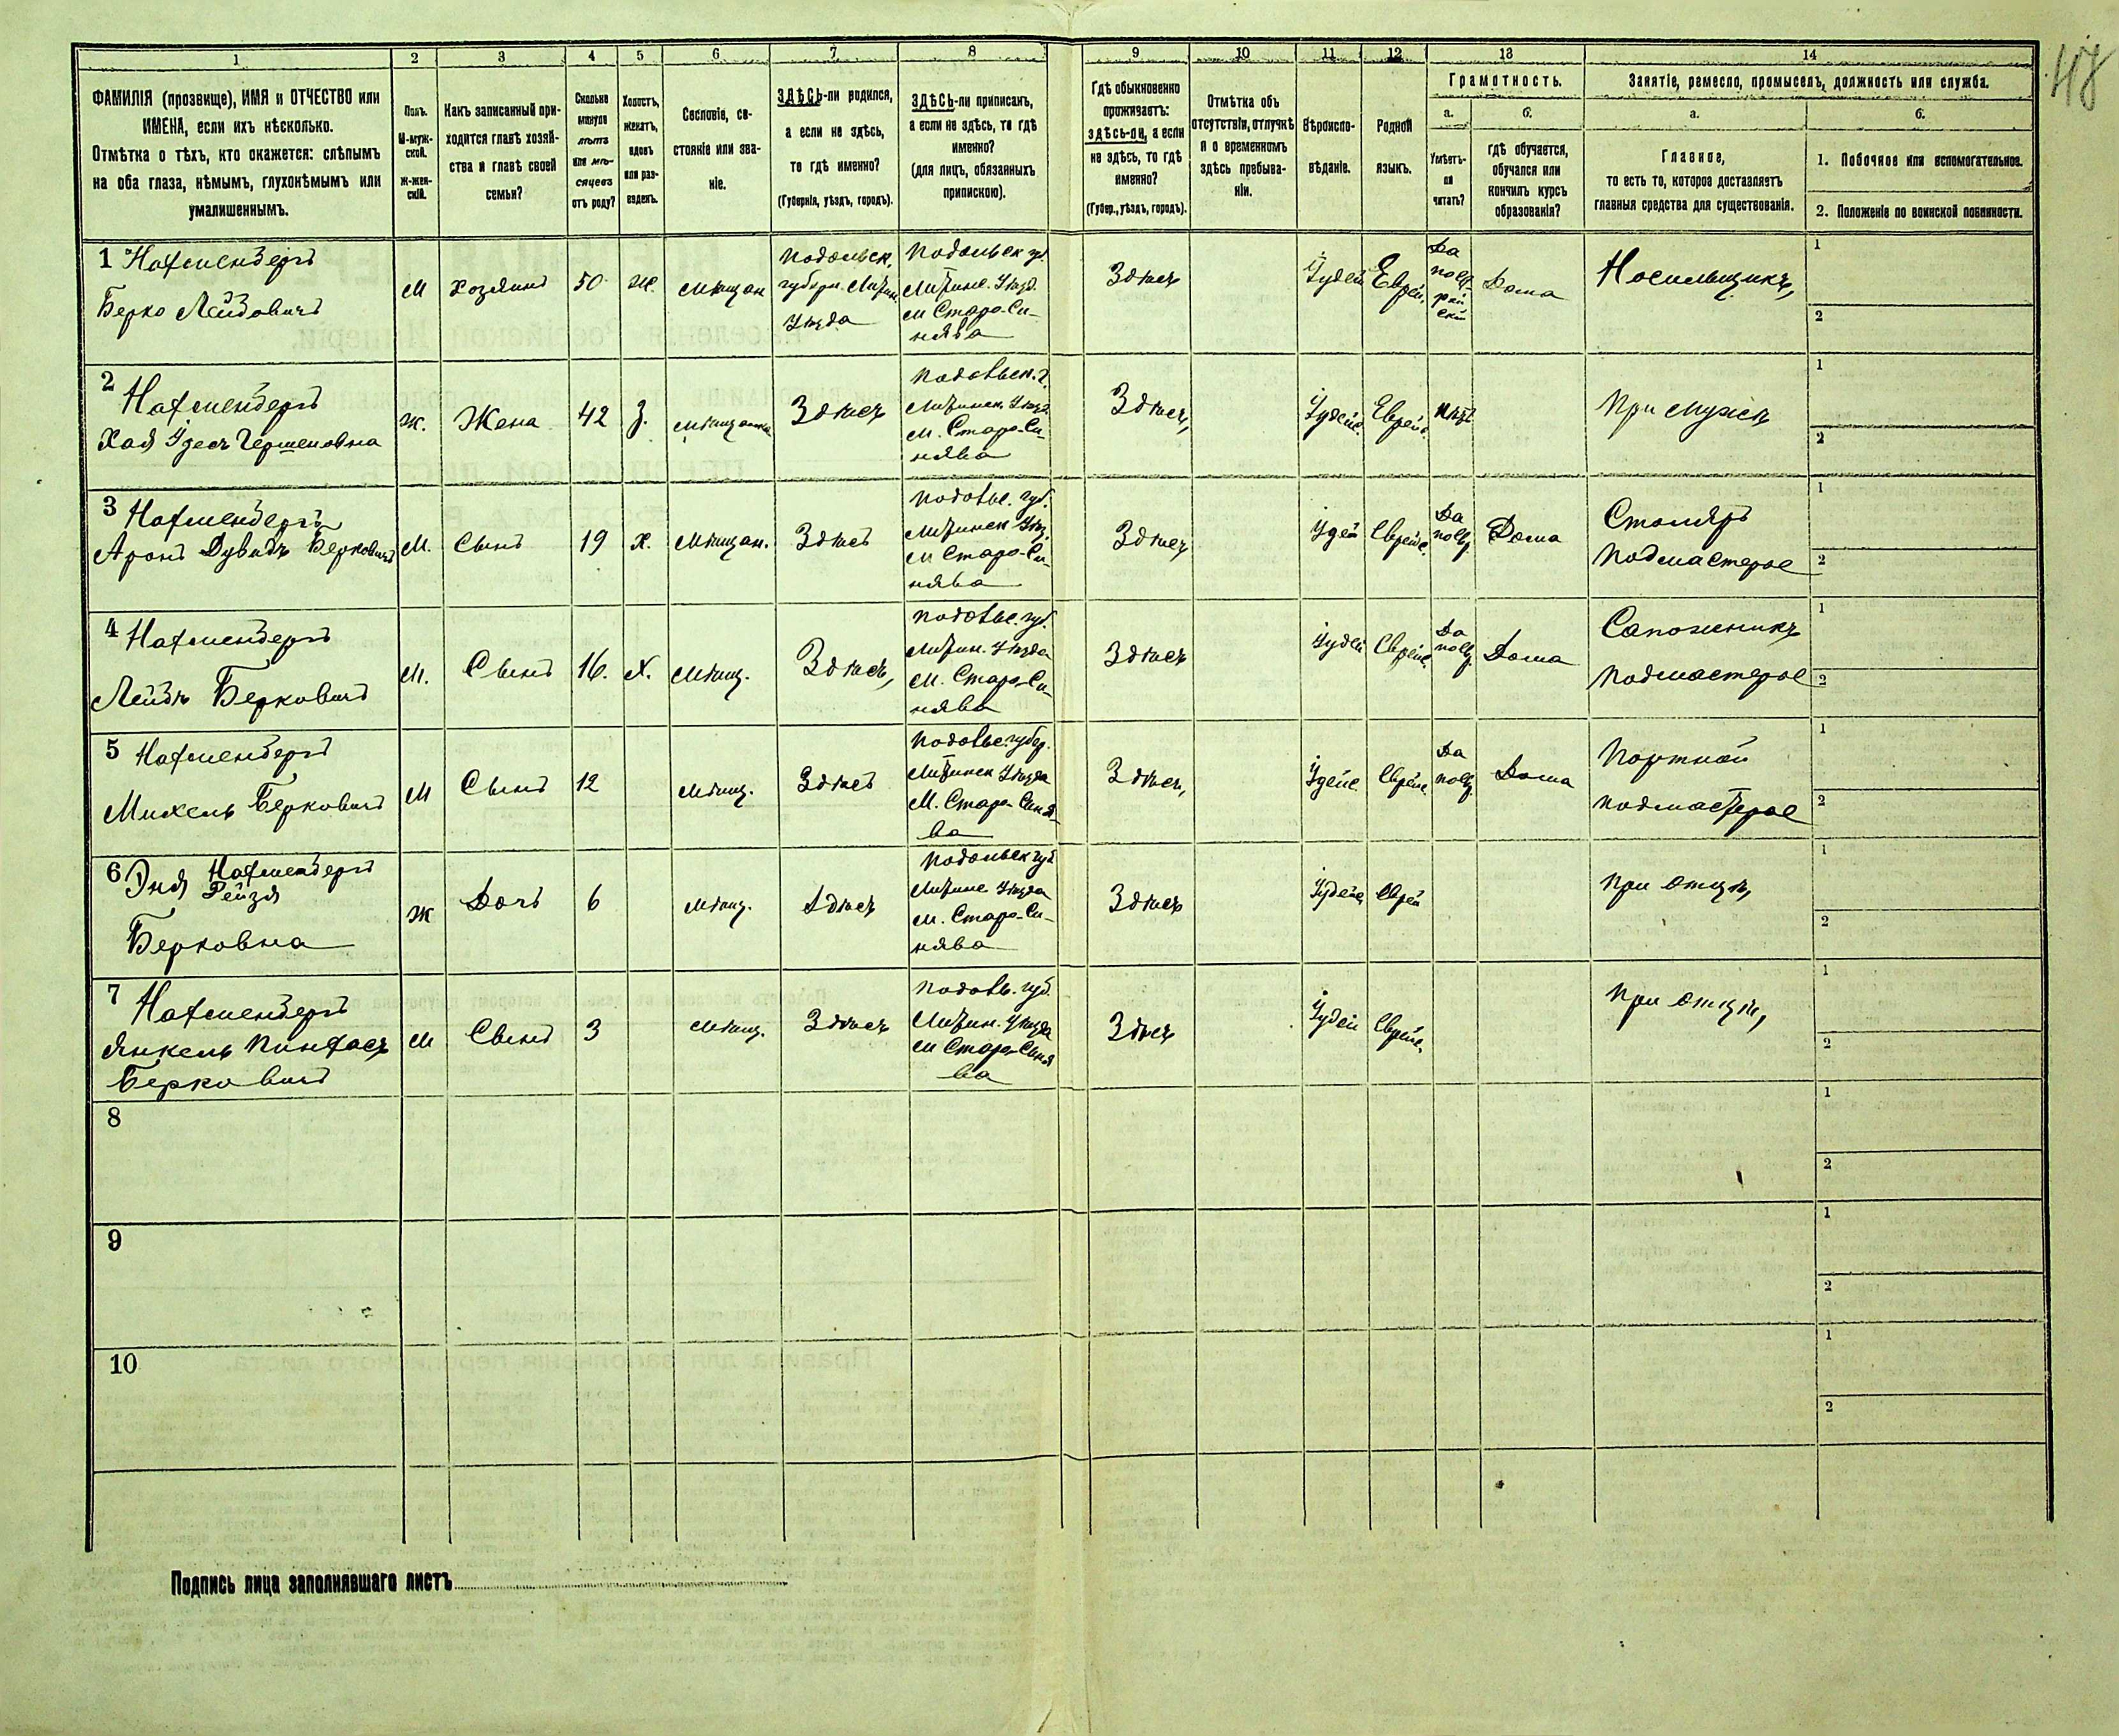 48
1
2
3
4
5
6
7
8
9
10
11
12
13
14
ФАМИЛІЯ (прозвище), ИМЯ и ОТЧЕСТВО или
ИМЕНА, если ихъ нѣсколько.
Отмѣтка о тѣхъ, кто окажется: слѣпымъ
на оба глаза, нѣмымъ, глухонѣмымъ или
умалишеннымъ.
Полъ.
М-муж-
ской.
Ж-жен-
скій.
Какъ записанный при-
ходится главѣ хозяй-
ства и главѣ своей
семьи?
Сколько
минуло
лѣтъ
или мѣ-
сяцевъ
отъ роду?
Холостъ,
женатъ,
вдовъ
или раз-
веденъ.
Сословіе, со-
стояніе или зва-
ніе.
ЗДѢСЬ-ли родился,
а если не здѣсь,
то гдѣ именно?
(Губернія, уѣздъ, городъ).
ЗДѢСЬ-ли приписанъ,
а если не здѣсь, то гдѣ
именно?
(для лицъ, обязанныхъ
припискою).
Гдѣ обыкновенно
проживаетъ:
здѣсь-ли, а если
не здѣсь, то гдѣ
именно?
(Губер., уѣздъ, городъ).
Отмѣтка объ
отсутствіи, отлучкѣ
и о временномъ
здѣсь пребыва-
ніи.
Вѣроиспо-
вѣданіе.
Родной
языкъ.
Грамотность.
а.
Умѣетъ-
ли
читать?
б.
гдѣ обучается,
обучался или
кончилъ курсъ
образованія?
Занятіе, ремесло, промыселъ, должность или служба.
а.
Главное,
то есть то, которое доставляетъ
главныя средства для существованія.
б.
1. Побочное или вспомогательное.
2. Положеніе по воинской повинности.
1
Берко Лейбовичъ
М
Хозяинъ
50
Ж.
Мѣщан
Подольск.
губерн. Литин.
Уѣзда
Подольск гу.
Литинс. Уѣзд.
м Старо-Си-
нява
Здѣсь
Іудей
Еврей.
Да
по ев-
рей
ски
Дома
Носильщикъ,
1
2
2
Хая Удесъ Гершеновна
Ж.
Жена
42
З.
Мѣщанка
Здѣсь
Подольск. г.
Литинск. Уѣзд.
м. Старо-Си-
нява
Здѣсь,
Іудейс.
Еврей.
Нѣт
При мужѣ
1
2
3
Аронъ Дувидъ Берковичъ
М.
Сынъ
19
Х.
Мѣщан.
Здѣсь
Подольс. губ.
Литинск Уѣз.
м Старо-Си-
нява
Здѣсь
Іудей
Еврейс.
Да
по ев
Дома
Столяръ
подмастерое
1
2
4
Лейбъ Берковичъ
М.
Сынъ
16.
Х.
Мѣщ.
Здѣсь,
Подольс. губ.
Литин. Уѣзда
м. Старо-Си-
нява
Здѣсь
Іудей
Еврейс.
Да
по ев
Дома
Сапожникъ
подмастерое
1
2
5
Михель Берковичъ
М
Сынъ
12
Мѣщ.
Здѣсь
Подольс. губер.
Литинск Уѣзда
М. Старо-Синя-
ва
Здѣсь,
Іудейс
Еврейс.
Да
по ев
Дома
Портной
подмастерое
1
2
6
Рейзя
Берковна
Ж
Дочь
6
Мѣщ.
Здѣсь
Подольск губ
Литинс Уѣзда
м. Старо-Си-
нява
Здѣсь
Іудейс
Еврей
при отцѣ,
1
2
7
Янкель Пинхасъ
Берковичъ
М
Сынъ
3
Мѣщ.
Здѣсь
Подоль. губ.
Литин. Уѣзда
м Старо-Синя
ва
Здѣсь
Іудей
Еврейс.
При отцѣ,
1
2
8
1
2
9
1
2
10
1
2
Подпись лица заполнявшаго листъ